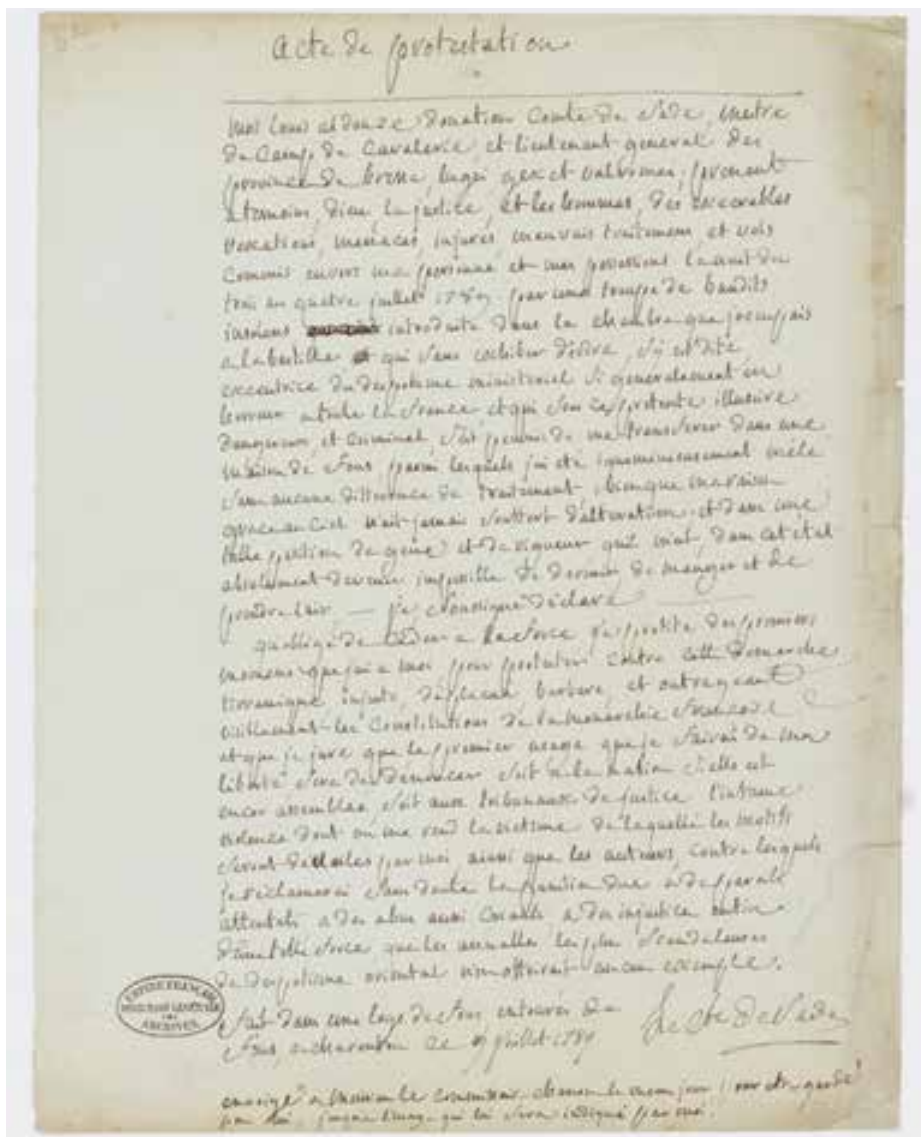 acte de protestation
moi Louis aldonze donatien Comte de Sade, mestre
de Camp de Cavalerie, et lieutenant general des
province de bresse, bugei gex et valromei, prenant
a temoins, dieu la justice, et les hommes, des execrables
vexations, menaces, injures mauvais traitemens, et vols
Commis envers ma personne et mes possessions la nuit du
trois au quatre juillet 1789 par une troupe de bandits
introduite dans la chambre que j'occupais
a la bastille et qui sans exhiber d'ordre, s'y est dite
executrice du despotisme ministeriel si generalement en
horreur a toute la france et qui sous ce pretexte illusoire
dangereux, et Criminel s'est permi de me transferer dans une
maison de fous parmi lesquels j'ai eté ignominieusement mêlé
sans aucune difference de traitement, bienque ma raison
grace au Ciel n'ait jamais souffert d'alteration, et dans une
telle position de gêne et de rigueur qu'il m'est dans cet etat
absolument devenu impossible de dormir de manger et de
prendre l'air — je soussigné déclare
qu'obligé de Céder a la force j'ai profité des premiers
momens que j'ai a moi pour protester Contre cette demarche
tirannique injuste, barbare, et outrageant
les Constitutions de la monarchie francoise
et que je jure que le premier usage que je fairai de ma
liberté sera de denoncer soit a la nation si elle est
encor assemblée, soit aux tribunaux de justice l'infame
violence dont on me rend la victime de laquelle les motifs
seront devoilés par moi, ainsi que les auteurs, contre lesquels
je reclamerai sans doute la punition due a de pareils
attentats a des abus aussi Criants, a des injustices enfin
d'une telle force que les annalles les plus scandaleuses
du despotisme oriental n'en offrirait aucun exemple.
fait dans une loge de fous entourés de
fous, a charenton ce 9 juillet 1789 le cte de Sade
EMPIRE FRANÇAIS
DIRECTION GÉNÉRALE
DES
ARCHIVES
envoyé a monsieur le commissaire le meme jour pour etre gardé
par lui, jusqu'a qui lui sera indiqué par moi.